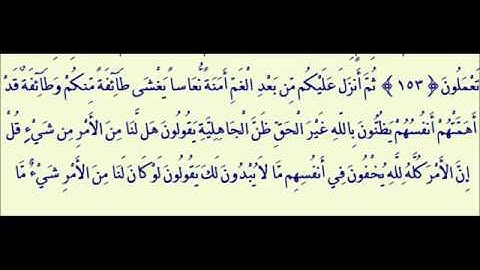 تَعْمَلُونَ ﴿١٥٣﴾ ثُمَّ أَنزَلَ عَلَيْكُم مِّن بَعْدِ الْغَمِّ أَمَنَةً نُّعَاساً يَغْشَى طَآئِفَةً مِّنكُمْ وَطَآئِفَةٌ قَدْ
أَهَمَّتْهُمْ أَنفُسُهُمْ يَظُنُّونَ بِاللّهِ غَيْرَ الْحَقِّ ظَنَّ الْجَاهِلِيَّةِ يَقُولُونَ هَل لَّنَا مِنَ الأَمْرِ مِن شَيْءٍ قُلْ
إِنَّ الأَمْرَ كُلَّهُ لِلَّهِ يُخْفُونَ فِي أَنفُسِهِم مَّا لاَ يُبْدُونَ لَكَ يَقُولُونَ لَوْ كَانَ لَنَا مِنَ الأَمْرِ شَيْءٌ مَّا